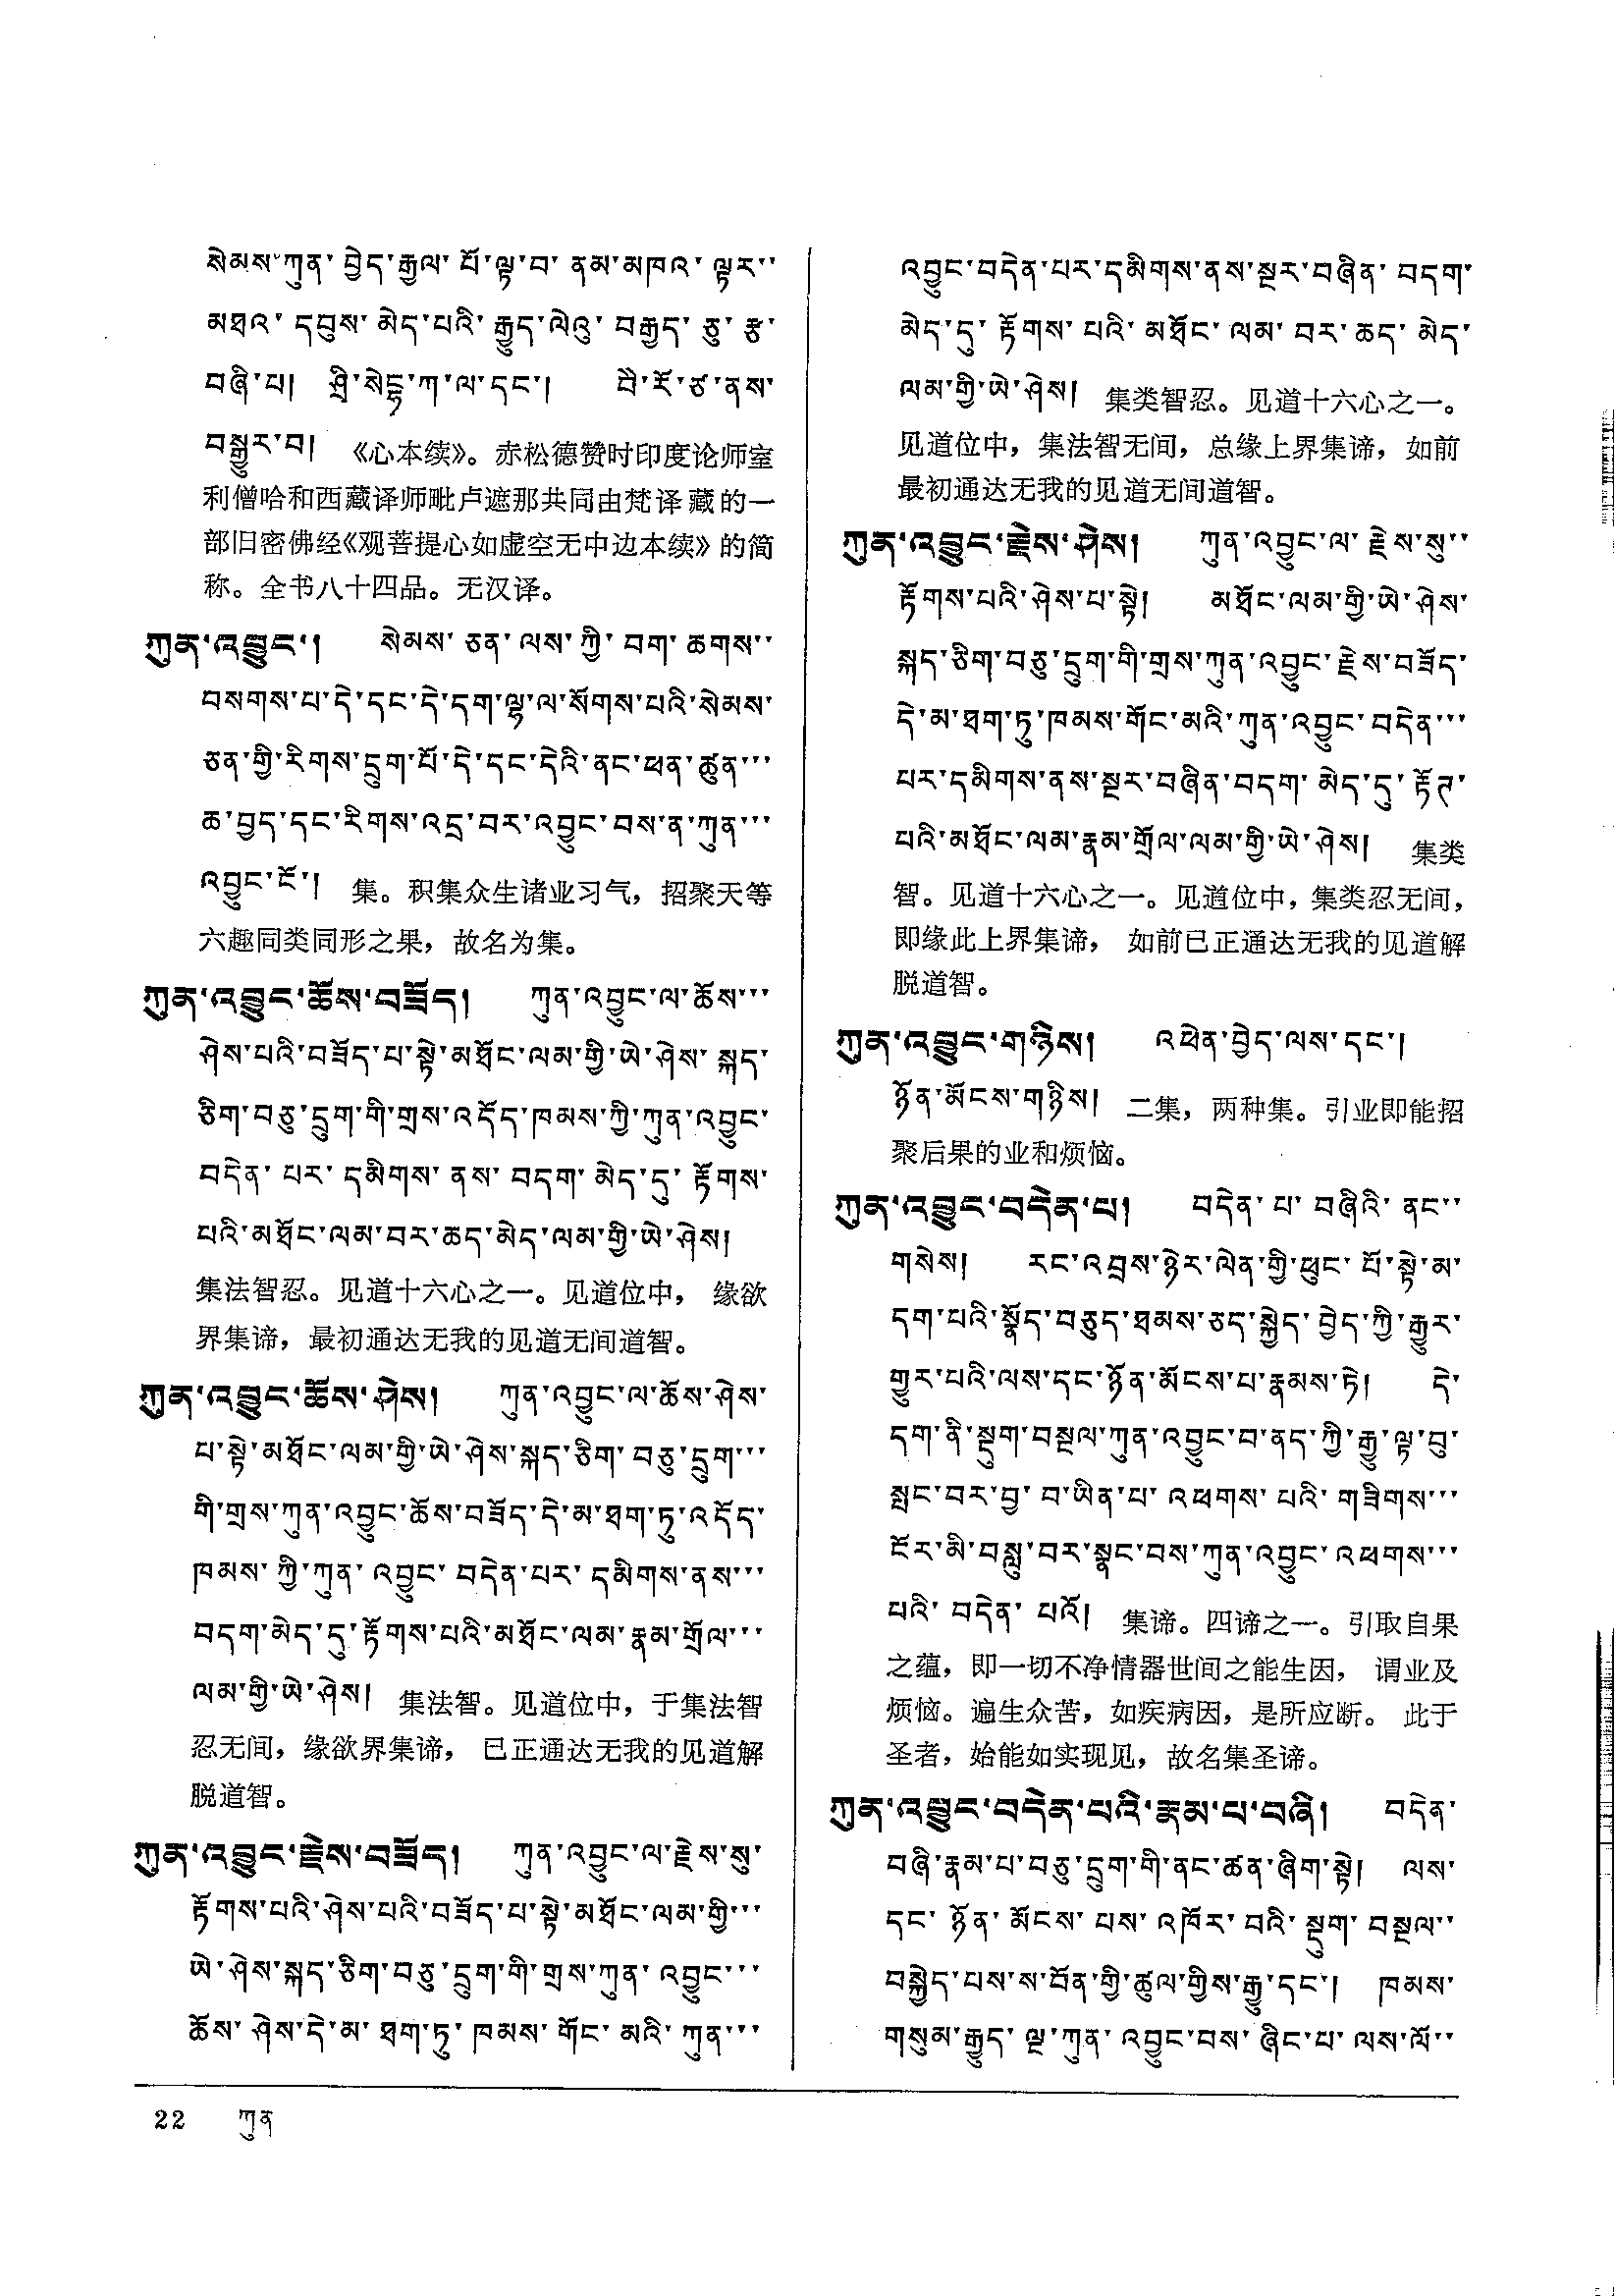 སེམས་ཀུན་བྱེད་རྒྱལ་པོ་ལྟ་བ་ནམ་མཁའ་ལྟར་་
མཐའ་དབུས་མེད་པའི་རྒྱུད་ལེའུ་བརྒྱད་ཅུ་རྩ་
བཞི་པ། ཤྲཱི་སེངྷ་ཀ་ལ་དང་། བཻ་རོ་ཙ་ནས་
བསྒྱུར་བ། 《心本续》。赤松德赞时印度论师室
利僧哈和西藏译师毗卢遮那共同由梵译藏的一
部旧密佛经《观菩提心如虚空无中边本续》的简
称。全书八十四品。无汉译。
ཀུན་འབྱུང་། སེམས་ཅན་ལས་ཀྱི་བག་ཆགས་་
བསགས་པ་དེ་དང་དེ་དག་ལྷ་ལ་སོགས་པའི་སེམས་
ཅན་གྱི་རིགས་དྲུག་པོ་དེ་དང་དེའི་ནང་ཕན་ཚུན་་་
ཆ་བྱད་དང་རིགས་འདྲ་བར་འབྱུང་བས་ན་ཀུན་་་
འབྱུང་ངོ་། 集。积集众生诸业习气，招聚天等
六趣同类同形之果，故名为集。
ཀུན་འབྱུང་ཆོས་བཟོད། ཀུན་འབྱུང་ལ་ཆོས་་་
ཤེས་པའི་བཟོད་པ་སྟེ་མཐོང་ལམ་གྱི་ཡེ་ཤེས་སྐད་
ཅིག་བཅུ་དྲུག་གི་གྲས་འདོད་ཁམས་ཀྱི་ཀུན་འབྱུང་
བདེན་པར་དམིགས་ནས་བདག་མེད་དུ་རྟོགས་
པའི་མཐོང་ལམ་བར་ཆད་མེད་ལམ་གྱི་ཡེ་ཤེས།
集法智忍。见道十六心之一。见道位中，缘欲
界集谛，最初通达无我的见道无间道智。
ཀུན་འབྱུང་ཆོས་ཤེས། ཀུན་འབྱུང་ལ་ཆོས་ཤེས་
པ་སྟེ་མཐོང་ལམ་གྱི་ཡེ་ཤེས་སྐད་ཅིག་བཅུ་དྲུག་་་
གི་གྲས་ཀུན་འབྱུང་ཆོས་བཟོད་དེ་མ་ཐག་ཏུ་འདོད་
ཁམས་ཀྱི་ཀུན་འབྱུང་བདེན་པར་དམིགས་ནས་་་
བདག་མེད་དུ་རྟོགས་པའི་མཐོང་ལམ་རྣམ་གྲོལ་་་
ལམ་གྱི་ཡེ་ཤེས། 集法智。见道位中，于集法智
忍无间，缘欲界集谛，已正通达无我的见道解
脱道智。
ཀུན་འབྱུང་རྗེས་བཟོད། ཀུན་འབྱུང་ལ་རྗེས་སུ་
རྟོགས་པའི་ཤེས་པའི་བཟོད་པ་སྟེ་མཐོང་ལམ་གྱི་་་
ཡེ་ཤེས་སྐད་ཅིག་བཅུ་དྲུག་གི་གྲས་ཀུན་འབྱུང་་་
ཆོས་ཤེས་དེ་མ་ཐག་ཏུ་ཁམས་གོང་མའི་ཀུན་་་
འབྱུང་བདེན་པར་དམིགས་ནས་སྔར་བཞིན་བདག་
མེད་དུ་རྟོགས་པའི་མཐོང་ལམ་བར་ཆད་མེད་
ལམ་གྱི་ཡེ་ཤེས། 集类智忍。见道十六心之一。
见道位中，集法智无间，总缘上界集谛，如前
最初通达无我的见道无间道智。
ཀུན་འབྱུང་རྗེས་ཤེས། ཀུན་འབྱུང་ལ་རྗེས་སུ་་
རྟོགས་པའི་ཤེས་པ་སྟེ། མཐོང་ལམ་གྱི་ཡེ་ཤེས་
སྐད་ཅིག་བཅུ་དྲུག་གི་གྲས་ཀུན་འབྱུང་རྗེས་བཟོད་
དེ་མ་ཐག་ཏུ་ཁམས་གོང་མའི་ཀུན་འབྱུང་བདེན་་་
པར་དམིགས་ནས་སྔར་བཞིན་བདག་མེད་དུ་རྟོཊ་
པའི་མཐོང་ལམ་རྣམ་གྲོལ་ལམ་གྱི་ཡེ་ཤེས། 集类
智。见道十六心之一。见道位中，集类忍无间，
即缘此上界集谛，如前已正通达无我的见道解
脱道智。
ཀུན་འབྱུང་གཉིས། འཕེན་བྱེད་ལས་དང་།
ཉོན་མོངས་གཉིས། 二集，两种集。引业即能招
聚后果的业和烦恼。
ཀུན་འབྱུང་བདེན་པ། བདེན་པ་བཞིའི་ནང་་
གསེས། རང་འབྲས་ཉེར་ལེན་གྱི་ཕུང་པོ་སྟེ་མ་
དག་པའི་སྣོད་བཅུད་ཐམས་ཅད་སྐྱེད་བྱེད་ཀྱི་རྒྱུར་
གྱུར་པའི་ལས་དང་ཉོན་མོངས་པ་རྣམས་ཏེ། དེ་
དག་ནི་སྡུག་བསྔལ་ཀུན་འབྱུང་བ་ནད་ཀྱི་རྒྱུ་ལྟ་བུ་
སྤང་བར་བྱ་བ་ཡིན་པ་འཕགས་པའི་གཟིགས་་་
ངོར་མི་བསླུ་བར་སྣང་བས་ཀུན་འབྱུང་འཕགས་་་
པའི་བདེན་པའོ། 集谛。四谛之一。引取自果
之蕴，即一切不净情器世间之能生因，谓业及
烦恼。遍生众苦，如疾病因，是所应断。此于
圣者，始能如实现见，故名集圣谛。
ཀུན་འབྱུང་བདེན་པའི་རྣམ་པ་བཞི། བདེན་
བཞི་རྣམ་པ་བཅུ་དྲུག་གི་ནང་ཚན་ཞིག་སྟེ། ལས་
དང་ཉོན་མོངས་པས་འཁོར་བའི་སྡུག་བསྔལ་་
བསྐྱེད་པས་ས་བོན་གྱི་ཚུལ་གྱིས་རྒྱུ་དང་། ཁམས་
གསུམ་རྒྱུད་ལྔ་ཀུན་འབྱུང་བས་ཞིང་པ་ལས་ལོ་་
22 ཀུན